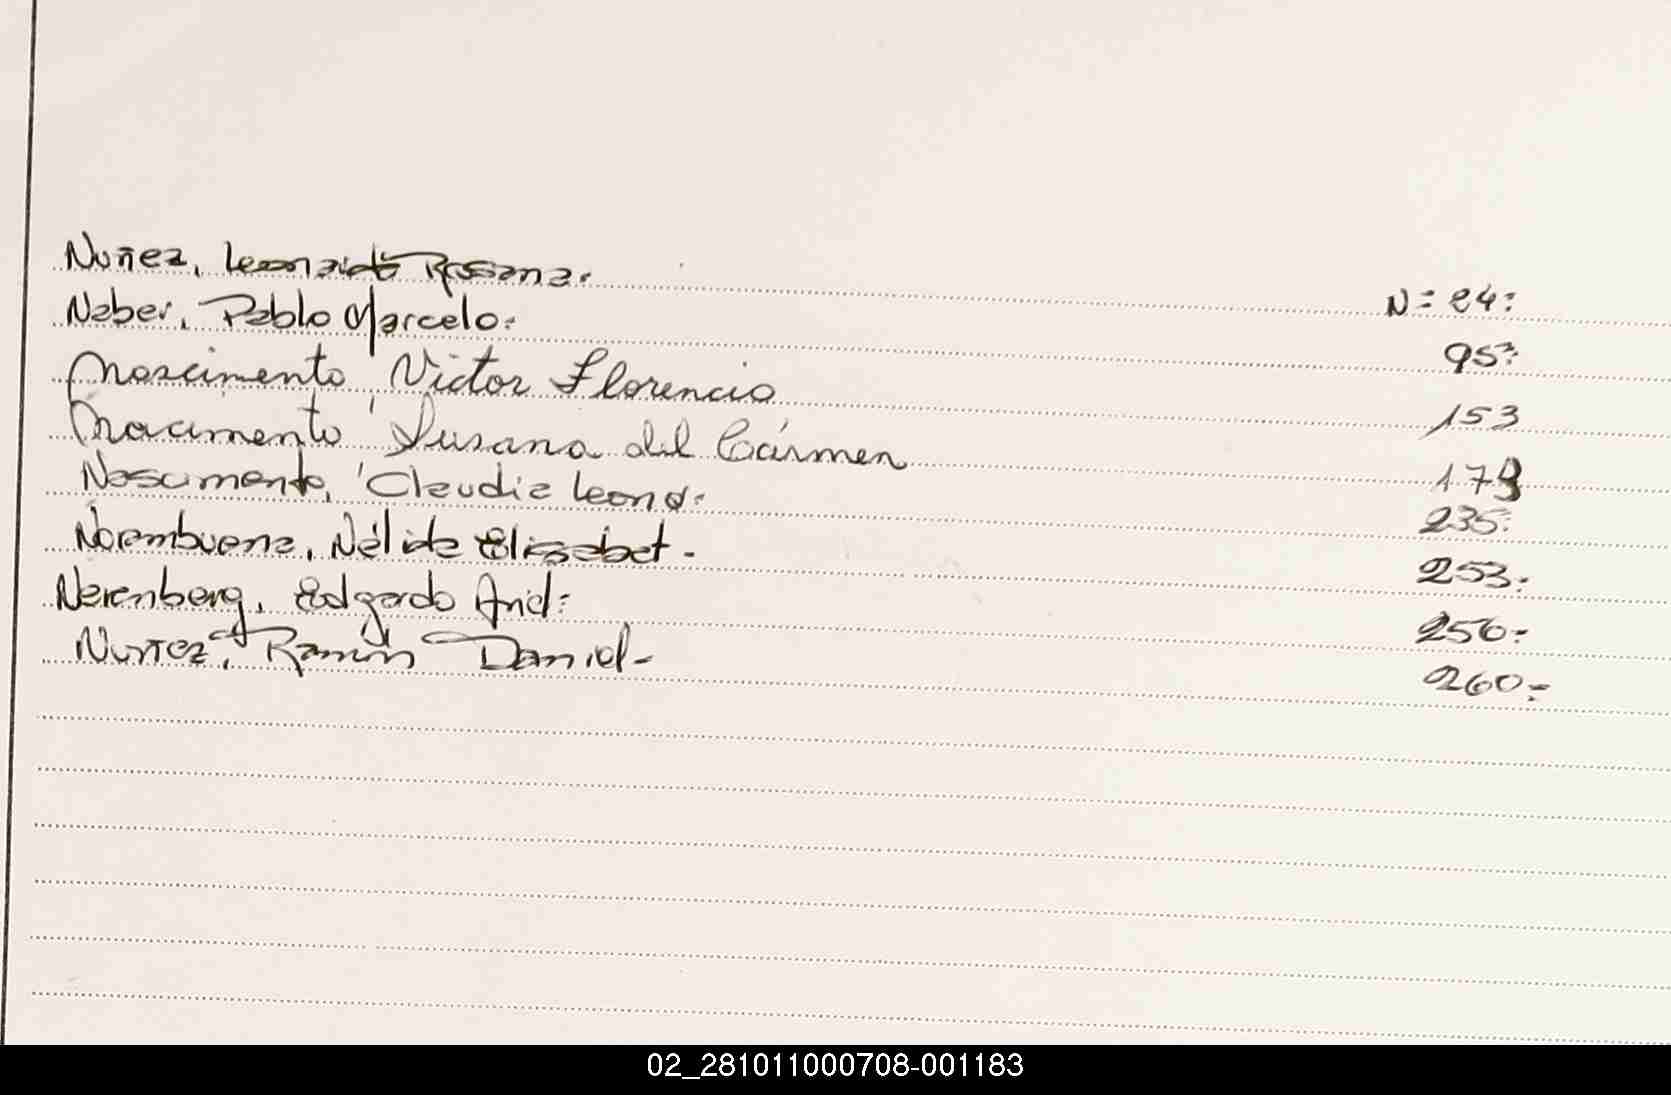 Nuñez, Leonarda Rosana. N= 24:
Naber, Pablo Marcelo. 95:
Nascimento, Victor Florencio 153
Nacimento, Susana del Cármen 179
Nascimento, Claudia Leonor. 235:
Norambuena, Nélida Elissabet - 253.
Nerenberg, Edgardo Ariel: 256-
Nuñez, Ramón Daniel - 260-
02_281011000708-001183